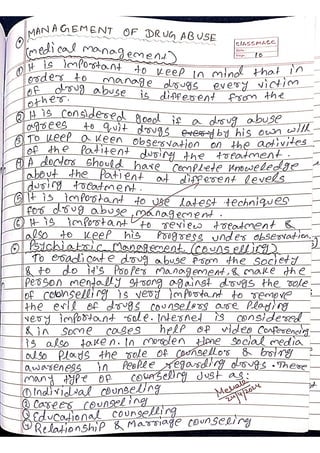 MANAGEMENT OF DRUG ABUSE
classmate
(medical management)
10
① It is important to keep in mind that in
order to manage drugs every victim
of drug abuse is different from the
other.
② It is considered good is a drug abuse
agrees to quit drugs by his own will
③ To keep a keen observation on the activites
of the patitent during the treatment.
④ A doctor should have complete knoweledge
about the patient at different levels
during treatment.
⑤ It is important to use latest techniques
for drug abuse management.
⑥ It is important to review treatment &
also to keep his progress under observation.
Psychiatric Management (counselling)
To eradicate drug abuse from the society
& to do it's proper management, & make the
person mentally strong against drugs the role
of counselling is very important to remove
the evil of drugs counselors are playing
very important role. Internet is considered
& in some cases help of video conferencing
is also taken. In morden time social media
also plays the role of counsellor & bring
awareness in people regarding drugs. There
many type of counseling just as:
① Individual counseling
② Career counseling
③ Educational counselling
④ Relationship & Marriage counseling